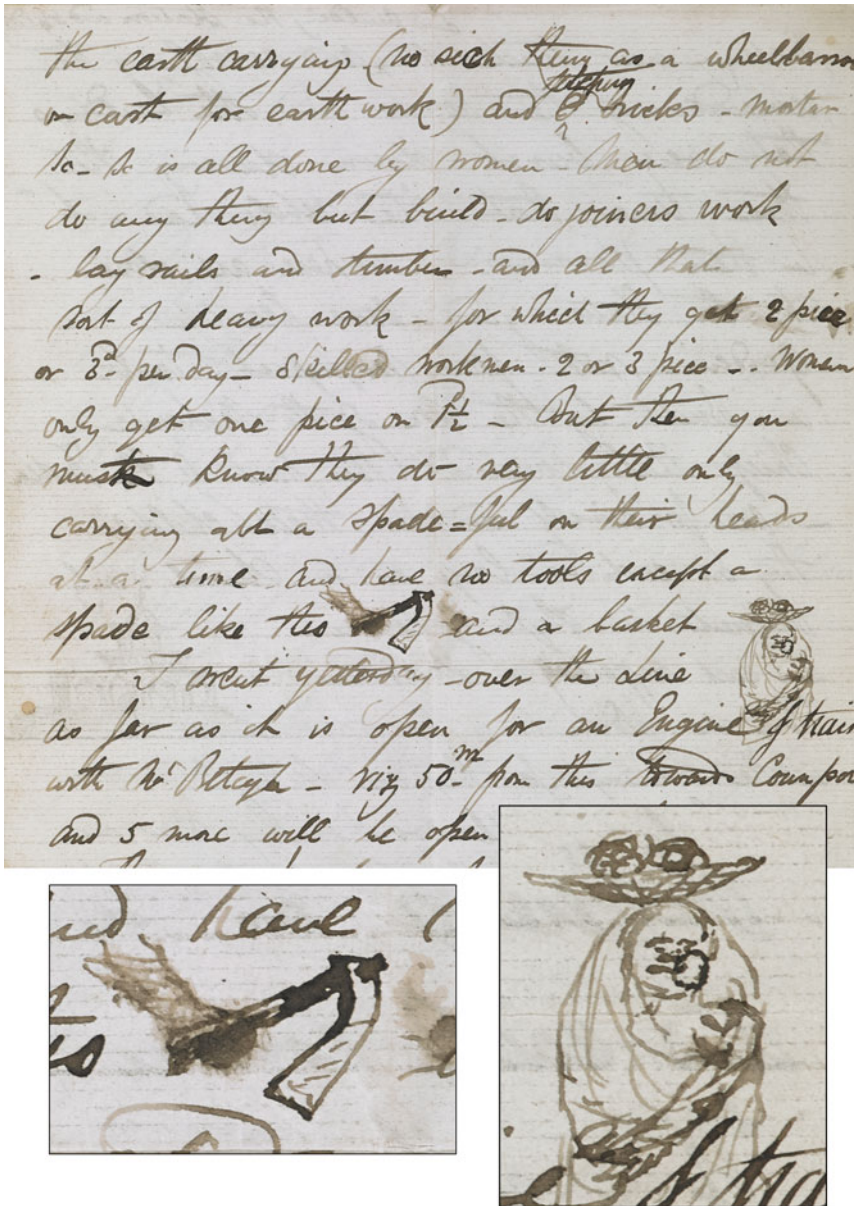 the earth carrying (no sich thing as a wheelbarrow
or cart for earth work) and fetching bricks - mortar
&c - &c is all done by women - Men do not
do any thing but build - do joiners work
- lay rails and timber - and all that
sort of heavy work - for which they get 2 pice
or 3d- per day - Skilled workmen - 2 or 3 pice - . Women
only get one pice or 1½ - But then you
must know they do very little only
carrying abt a spade=ful on their heads
at a time - and have no tools except a
spade like this and a basket
I went yesterday - over the Line
as far as it is open for an Engine & train
with Mr - viz 50m from this towards
and 5 more will be open
and have
& tra